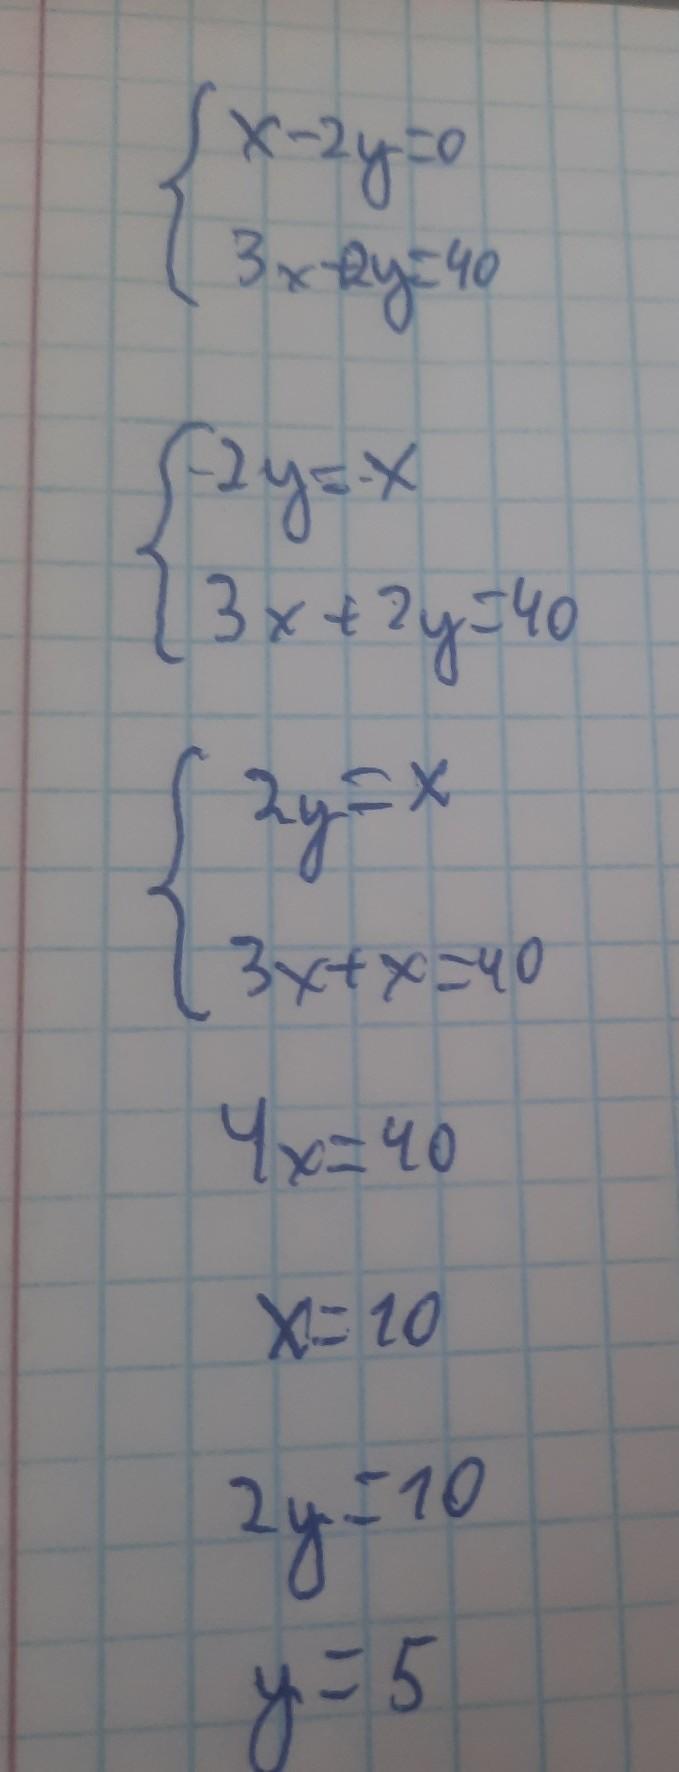 x-2y=0
3x-2y=40
-2y=-x
3x+2y=40
2y=x
3x+x=40
4x=40
x=10
2y=10
y=5